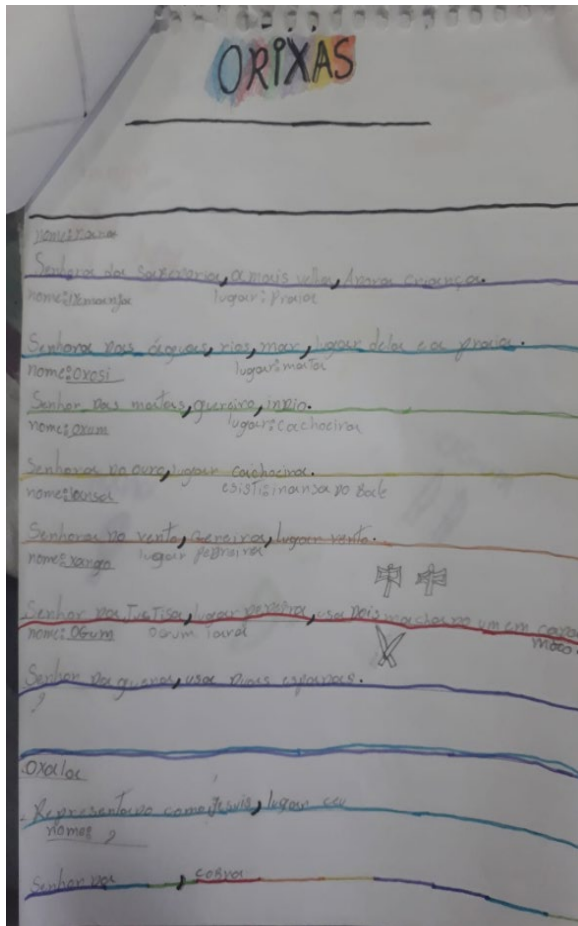 ORIXAS
nome: nana
Senhora da sabedoria, a mais velha, Ama criança.
nome: Iemanja lugar: praia
Senhora das águas, rios, mar, lugar dela e a praia.
nome: Oxosi lugar: mata
Senhor das matas, guereiro, indio.
nome: Oxum lugar: cachoeira
Senhora do ouro, lugar cachoeira.
nome: Iansa esisti: inansa do Bale
Senhora do vento, Guereira, lugar vento.
nome: xango lugar pedreira
Senhor da Justisa, lugar pedreira, usa dois machado um em cada
mão.
nome: OGum Ogum
Senhor da guerra, usa duas espadas.
Oxala
Representado como Jesuis, lugar ceu
nome: ?
Senhor da , cobra